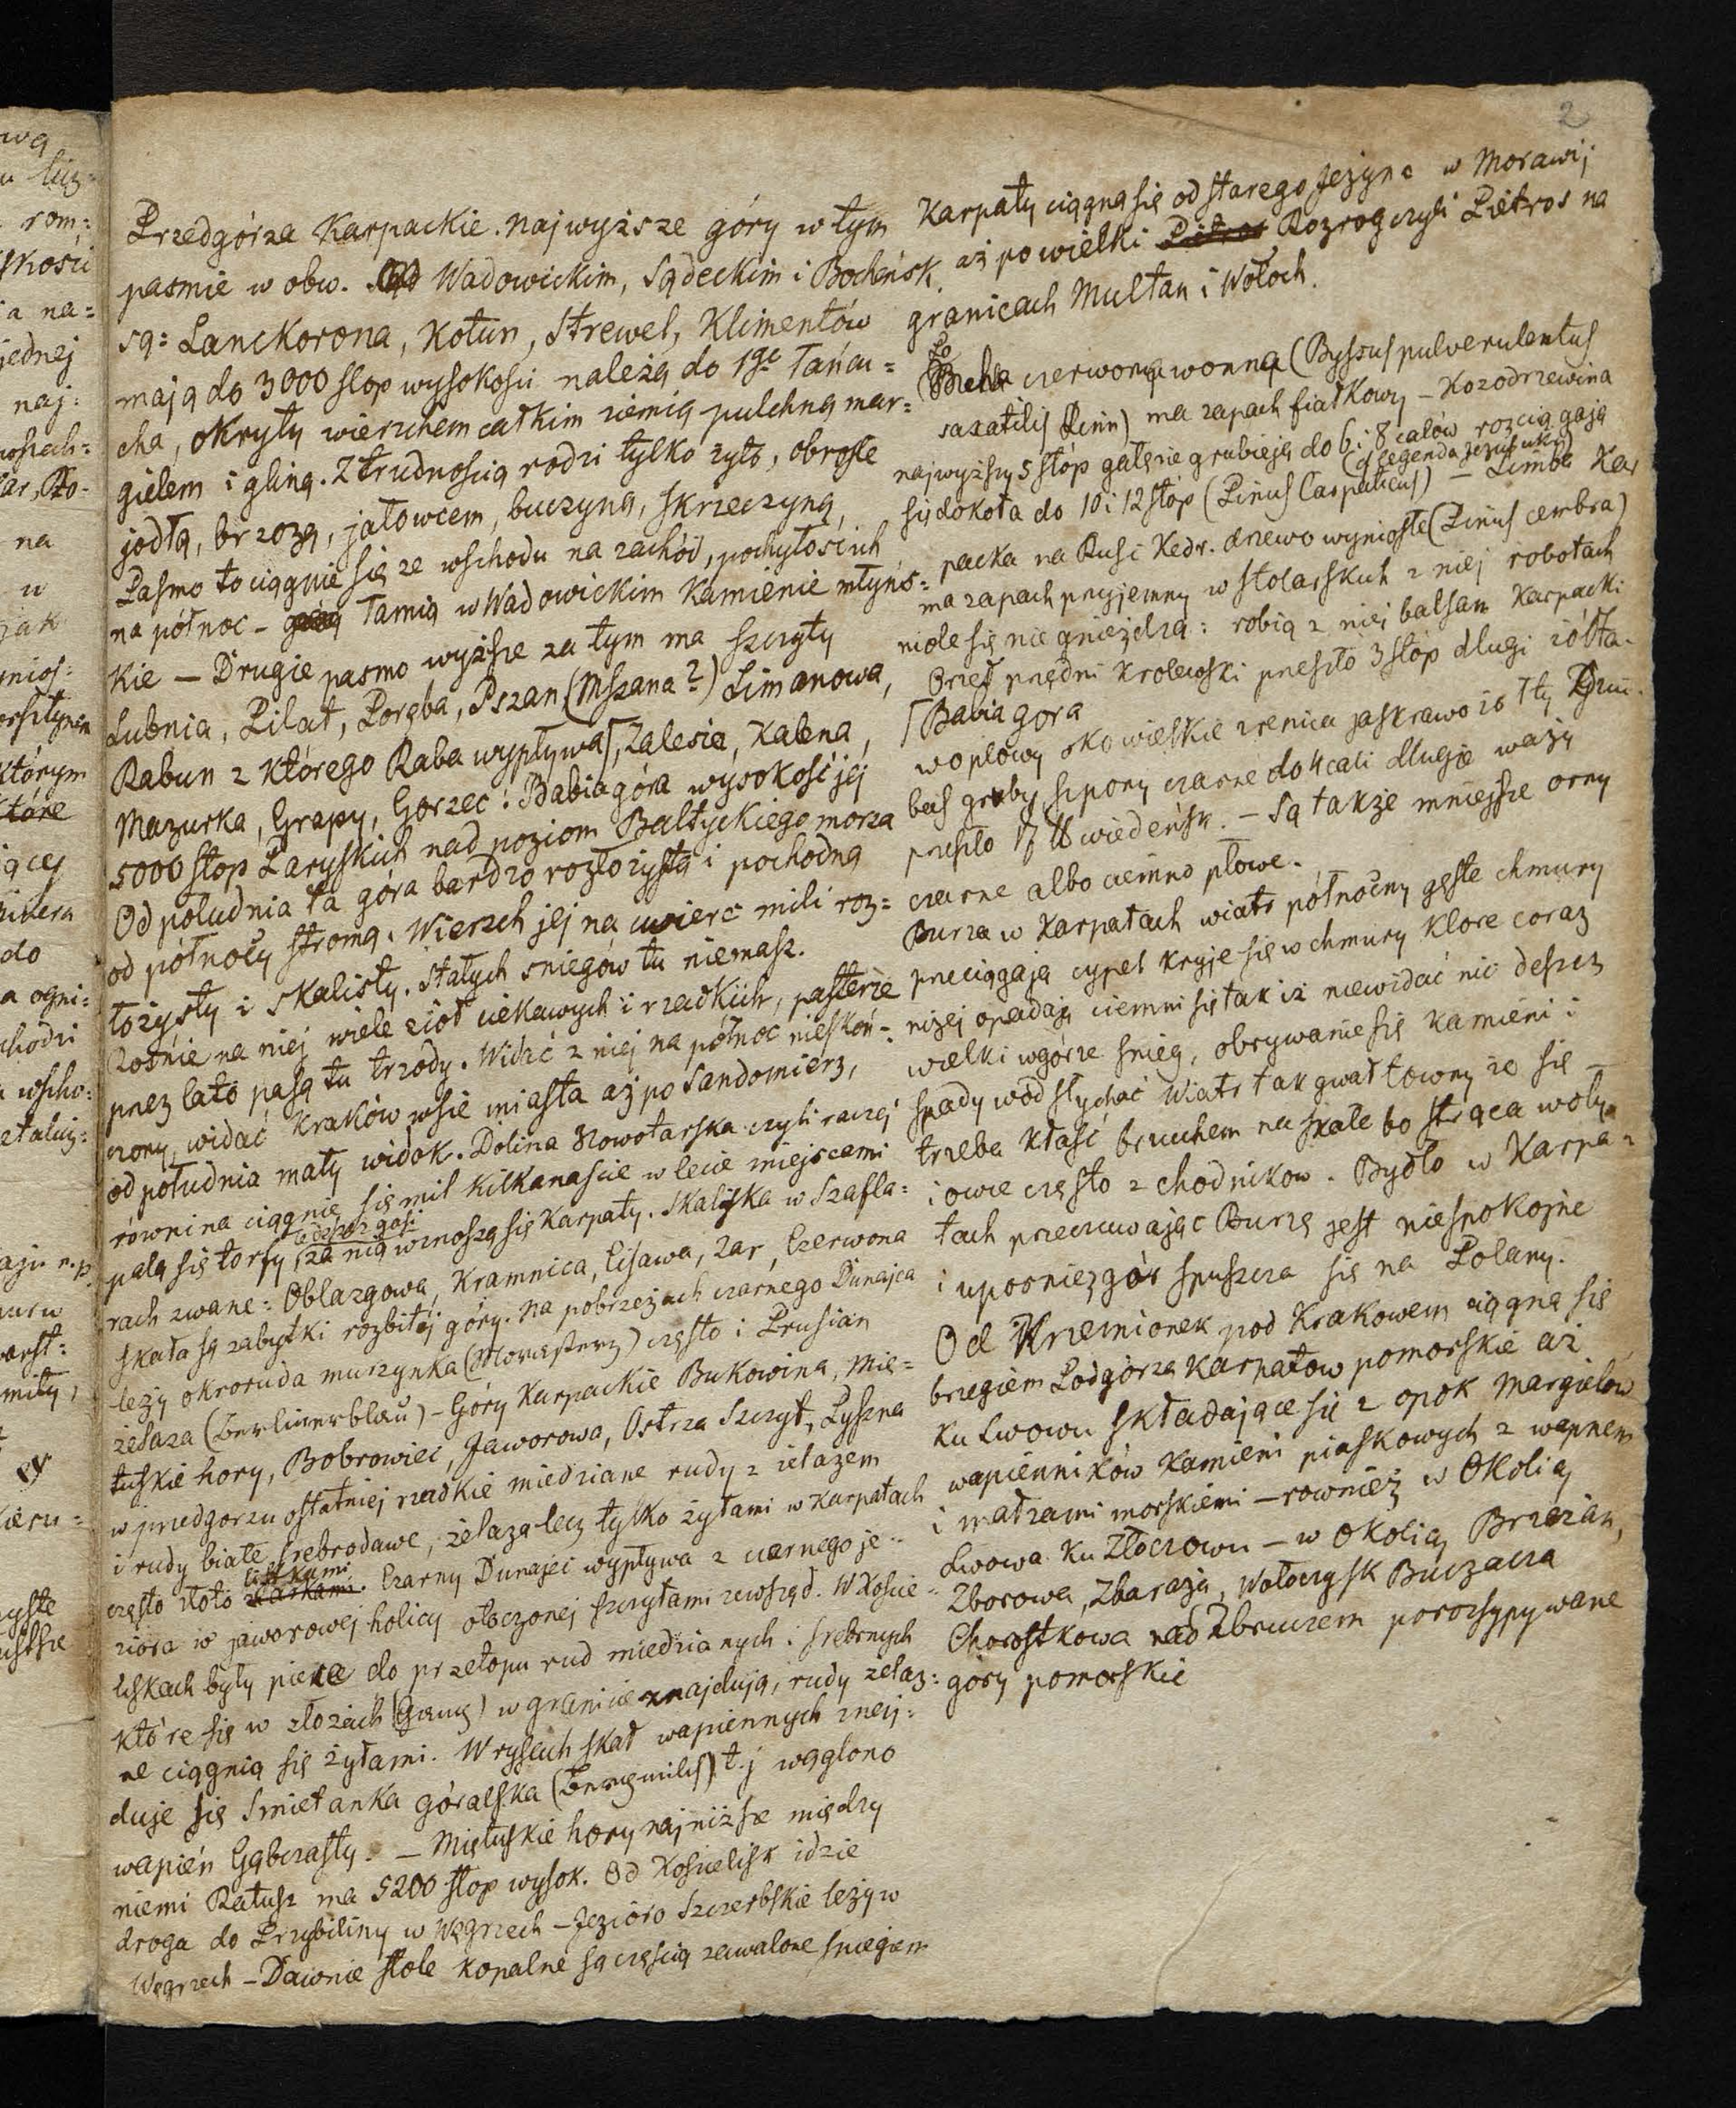 2
Przedgórza Karpackie. Najwyższe góry w tym
pasmie w obw. Wadowickim, Sądeckim i Bocheńsk.
są: Lanckorona, Kotun, Strewel, Klimentów
mają do 3000 stop wysokosci należą do 1go Łańcu=
cha, okryty wierzchem całkim ziemią pulchną mar=
gielem i gliną. Z trudnoscią rodzi tylko żyto, obrosłe
jodłą, brzozą, jałowcem, buczyną, skrzeczyną,
Pasmo to ciągnie się ze wschodu na zachód, pochyłosc ich
na północ – łamią w Wadowickim Kamienie młyńs=
kie – Drugie pasmo wyższe za tym ma szczyty
Lubnia, Pilat, Poręba, Pszan, (Mszana?) Limanowa,
Rabun z którego Raba wypływa, Zalesie, Kalena,
Mazurka, Grapy, Gorzec. Babia góra wysokość jej
5000 stop Paryskich nad poziom Baltyckiego morza
Od południa ta góra bardzo rozłożysta i pochodna
od północy stroma. Wierzch jej na cwierc mili roz=
łożysty i skalisty. Stałych sniegów tu niemasz.
Rośnie na niej wiele ziół ciekawych i rzadkich, pasterze
przez lato pasą tu trzody. Widać z niej na północ nieskoń=
czony, widać Kraków wsie miasta aż po Sandomierz,
od południa mały widok. Dolina Nowotarska czyli raczej
równina ciągnie się mil kilkanascie w lecie miejscami
palą się torfy za nią wznoszą się Karpaty. Skaliska w Szafla=
rach zwane: Oblazgowa, Kramnica, Lisawa, Żar, Czerwona
skała są zabytki rozbitej góry. Na pobrzeżach czarnego Dunajca
leży okroruda murzynka (Morasterz) często i Prusian
żelaza (Berlinerblau) – Góry Karpackie Bukowina, Mię=
tuskie hory, Bobrowiec, Jaworowa, Ostrza Szczyt, Łyszna
w przedgorzu ostatniej rzadkie miedziane rudy z żelazem
i rudy białe, srebrodawe, żelaza lecz tylko żyłami w Karpatach
listkami
często złoto. Czarny Dunajec wypływa z czarnego je=
ziora w jaworowej holicy otoczonej szczytami zewsząd. W Koscie=
liskach były piece do przetopu rud miedzianych i srebrnych
które się w złożach (Gang) w granicie znajdują, rudy żelaz=
ne ciągnią się żyłami. W rysach skał wapiennych znaj=
duje się Smietanka góralska (Bergmilch) t.j węglono
wapień Gąbczasty. – Miętuskie hory najniższe między
niemi Ratusz ma 5200 stop wysok. Od Koscielisk idzie
droga do Przybiliny w Węgrzech – Jezioro Szczerbskie leży w
Węgrzech – Dawnie stole kopalne są częscią zawalone sniegiem
Karpaty ciągną się od starego Jeżyna w Morawij
aż po wielki Rozrog czyli Pietros na
granicach Multan i Wołoch.
czerwona wonna (Byssus pulverulentus
saxatilis Linn) ma zapach fiałkowy – Kozodrzewina
najwyższy 5 stóp gałęzie grubieją do 6 i 8 calów rozciągają
się dokoła do 10 i 12 stóp (Pinus Carpaticus) – Limba Kar
packa na Rusi Kedr. drzewo wyniosłe (Pinus cembra)
ma zapach przyjemny w stolarskich z niej robotach
mole się nie gnieżdzą: robią z niej balsam Karpacki
Orzeł przędni krolewski przeszło 3 stóp długi żółta=
Babia gora
wo płowy oko wielkie zrenica jaskrawo żołty
gruby szpony czarne do 4 cali długie waży
przeszło 17 ℔ wiedeńsk. – Są także mniejsze orny
czarne albo ciemno płowe.
Burza w Karpatach wiatr północny gęste chmury
przeciągają cypel kryje się w chmury które coraz
niżej opadają ciemni się tak iż niewidać nic deszcz
wielki wgórze snieg, obrywanie się kamieni i
spady wód słychać Wiatr tak gwałtowny że się
trzeba kłasć brzuchem na skale bo strąca woły
i owce często z chodnikow. Bydło w Karpa=
tach przeczuwając Burzę jest niespokojne
i uposniez gór spuszcza się na Polany.
Od Krzemionek pod Krakowem ciągną się
brzegiem Podgórza Karpatow pomorskie aż
ku Lwowu składające się z opok, margielów
wapienników kamieni piaskowych z wapnem
i małzami morskiemi – rownież w okolicy
Lwowa ku Złoczowu – w okolicy Brzezan,
Zborowa, Zbaraża, Wołoczysk Buczacza
Chorostkowa nad Zbruczem porozsypywane
góry pomorskie